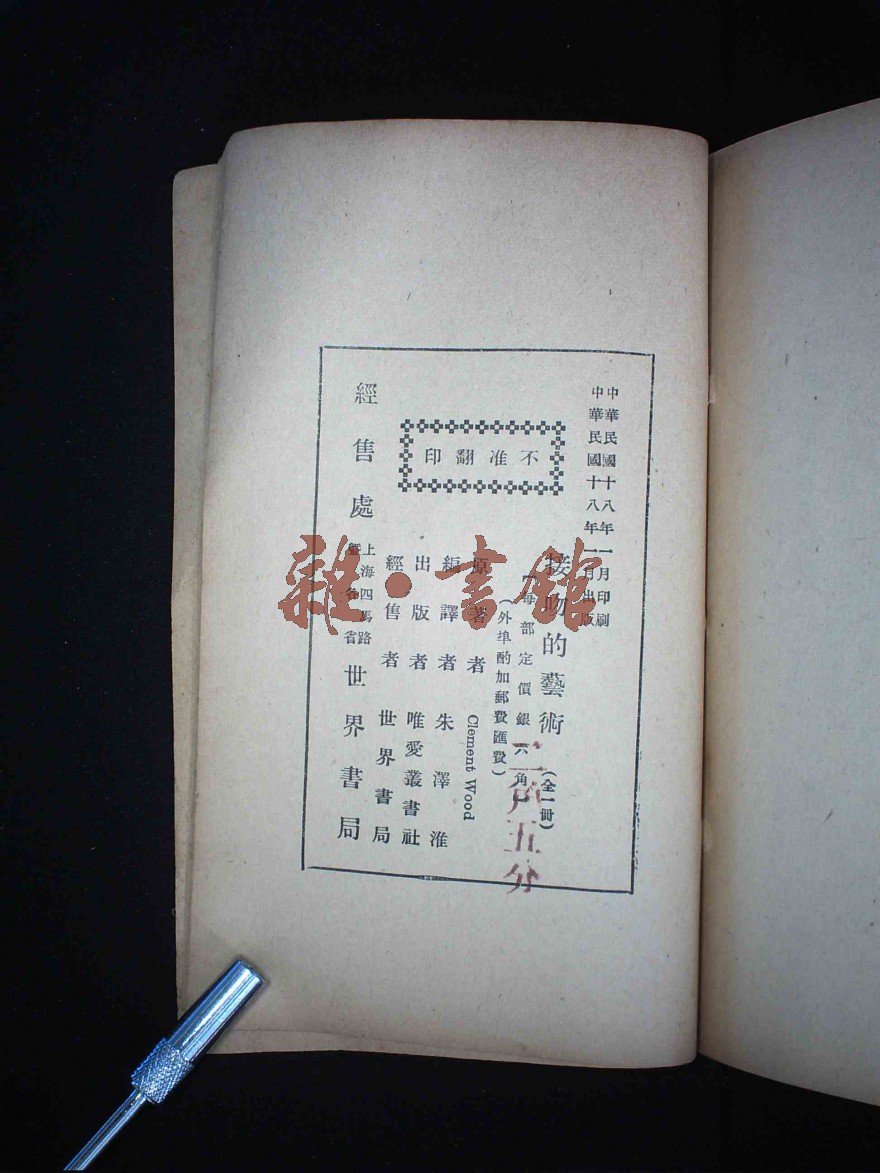 中華民國十八年一月印刷
中華民國十八年一月出版
接吻的藝術(全一冊)
【每部定價銀六角】
二角五分
(外埠酌加郵費匯費)
不准翻印
原著者 Clement Wood
編譯者 朱澤淮
出版者 唯愛叢書社
經售者 世界書局
經售處 上海四馬路暨各省 世界書局
雜·書館